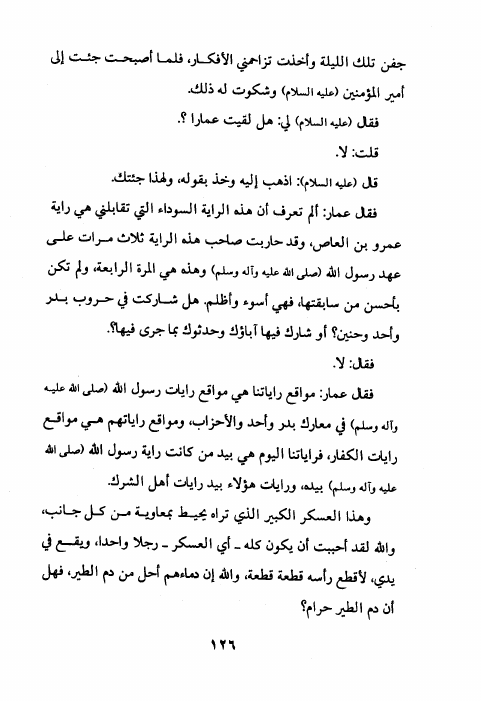 جفن تلك الليلة وأخذت تزاحمني الأفكار، فلما أصبحت جئت إلى
أمير المؤمنين (عليه السلام) وشكوت له ذلك.
فقال (عليه السلام) لي: هل لقيت عمارا ؟.
قلت: لا.
قال (عليه السلام): اذهب إليه وخذ بقوله، ولهذا جئتك.
فقال عمار: ألم تعرف أن هذه الراية السوداء التي تقابلني هي راية
عمرو بن العاص، وقد حاربت صاحب هذه الراية ثلاث مرات على
عهد رسول الله (صلى الله عليه وآله وسلم) وهذه هي المرة الرابعة، ولم تكن
بأحسن من سابقتها، فهي أسوء وأظلم. هل شاركت في حروب بدر
وأحد وحنين؟ أو شارك فيها آباؤك وحدثوك بما جرى فيها؟.
فقال: لا.
فقال عمار: مواقع راياتنا هي مواقع رايات رسول الله (صلى الله عليه
وآله وسلم) في معارك بدر وأحد والأحزاب، ومواقع راياتهم هي مواقع
رايات الكفار، فراياتنا اليوم هي بيد من كانت راية رسول الله (صلى الله
عليه وآله وسلم) بيده، ورايات هؤلاء بيد رايات أهل الشرك.
وهذا العسكر الكبير الذي تراه يحيط بمعاوية من كل جانب،
والله لقد أحببت أن يكون كله ـ أي العسكر ـ رجلا واحدا، ويقع في
يدي، لأقطع رأسه قطعة قطعة، والله إن دماءهم أحل من دم الطير، فهل
أن دم الطير حرام؟
١٢٦